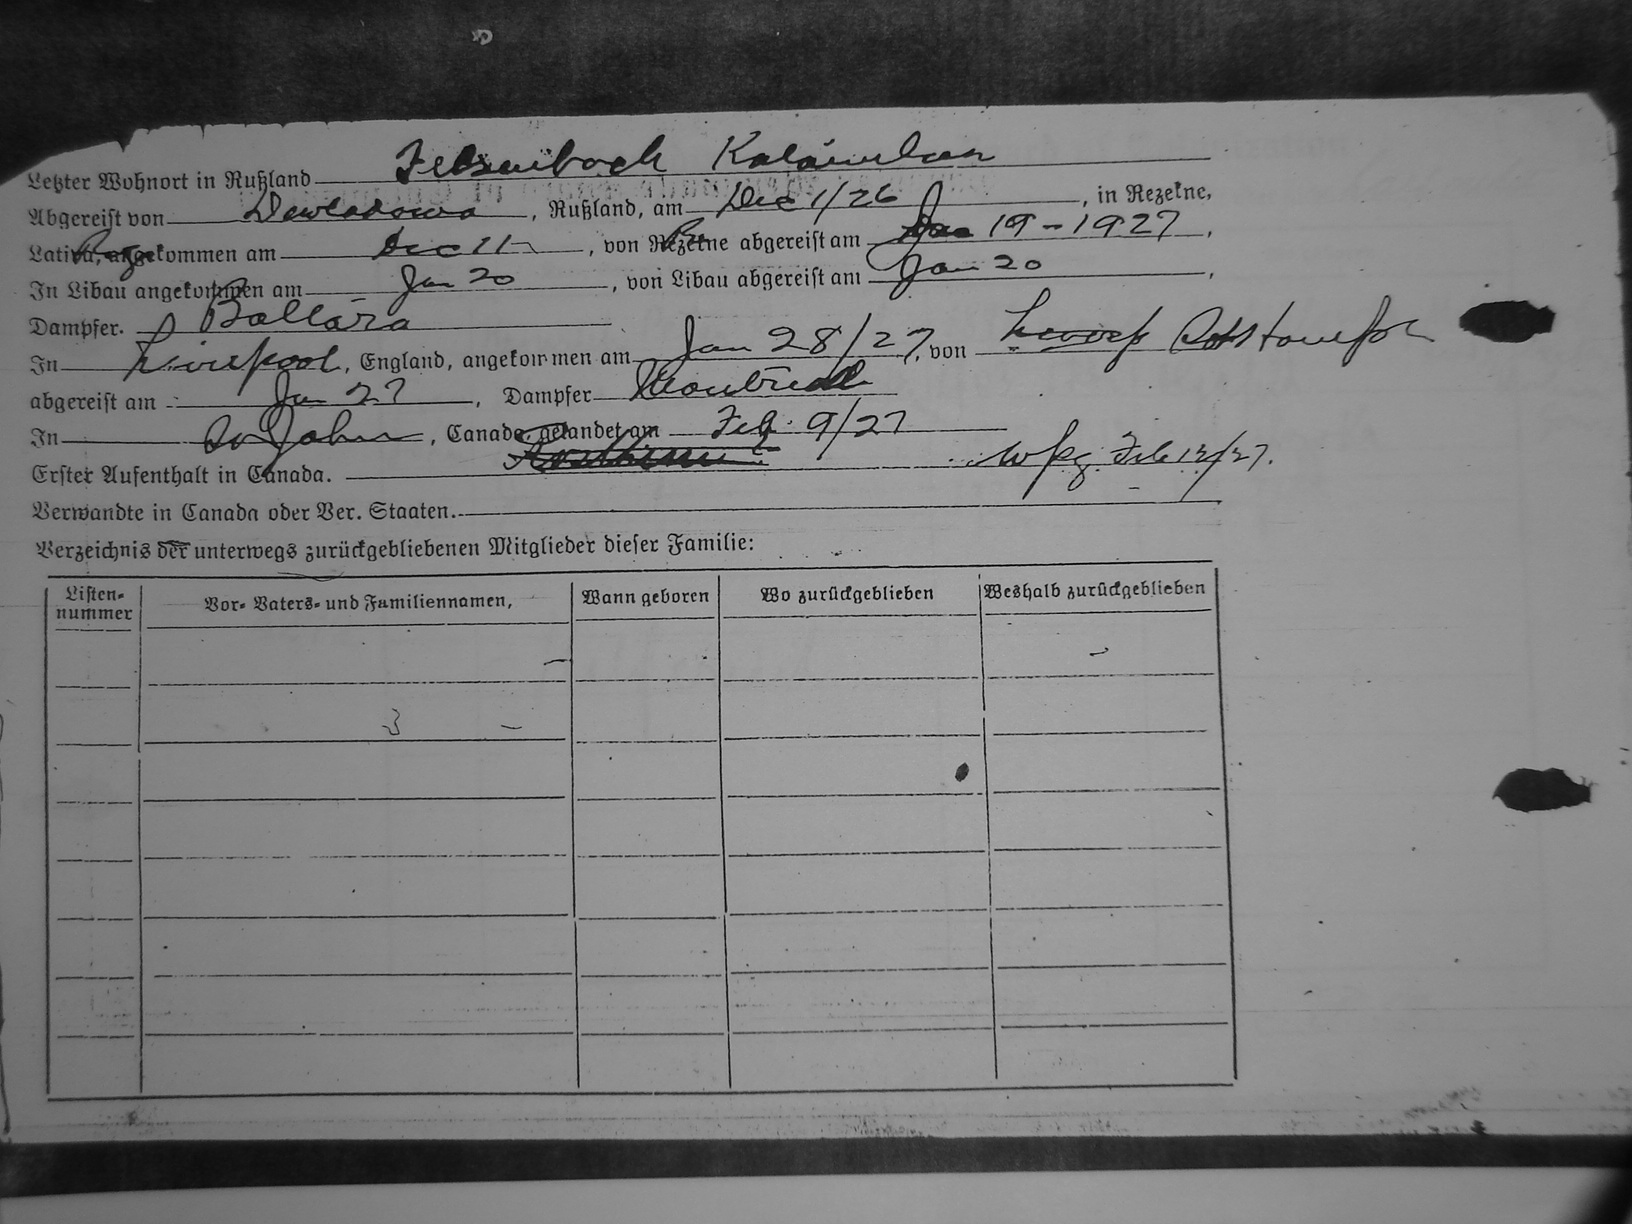 Letzter Wohnort in Rußland Felsenbach
Abgereist von Dewladowa, Rußland, am Dec 1/26, in Rezekne,
kommen am Dec 11, von Rezekne abgereist am 19 - 1927,
In Libau angekommen am Jan 20, von Libau abgereist am Jan 20,
Dampfer. Baltara
In Liverpool, England, angekommen am Jan 28/27, von
abgereist am Jan 27, Dampfer
In St John, Canada, gelandet am Feb. 9/27
Erster Aufenthalt in Canada. Wpg. Feb 12/27.
Verwandte in Canada oder Ver. Staaten.
Verzeichnis der unterwegs zurückgebliebenen Mitglieder dieser Familie:
Listen- nummer Vor- Vaters- und Familiennamen, Wann geboren Wo zurückgeblieben Weshalb zurückgeblieben